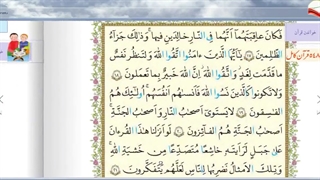 فَكَانَ عَاقِبَتَهُمَا أَنَّهُمَا فِي النَّارِ خَالِدَيْنِ فِيهَا وَذَٰلِكَ جَزَاءُ
الظَّالِمِينَ ۝ يَا أَيُّهَا الَّذِينَ ءَامَنُوا اتَّقُوا اللَّهَ وَلْتَنظُرْ نَفْسٌ
مَا قَدَّمَتْ لِغَدٍ وَاتَّقُوا اللَّهَ إِنَّ اللَّهَ خَبِيرٌ بِمَا تَعْمَلُونَ ۝
وَلَا تَكُونُوا كَالَّذِينَ نَسُوا اللَّهَ فَأَنسَاهُمْ أَنفُسَهُمْ أُولَٰئِكَ هُمُ
الْفَاسِقُونَ ۝ لَا يَسْتَوِي أَصْحَابُ النَّارِ وَأَصْحَابُ الْجَنَّةِ
أَصْحَابُ الْجَنَّةِ هُمُ الْفَائِزُونَ ۝ لَوْ أَنزَلْنَا هَٰذَا الْقُرْءَانَ
عَلَىٰ جَبَلٍ لَّرَأَيْتَهُ خَاشِعًا مُّتَصَدِّعًا مِّنْ خَشْيَةِ اللَّهِ
وَتِلْكَ الْأَمْثَالُ نَضْرِبُهَا لِلنَّاسِ لَعَلَّهُمْ يَتَفَكَّرُونَ ۝